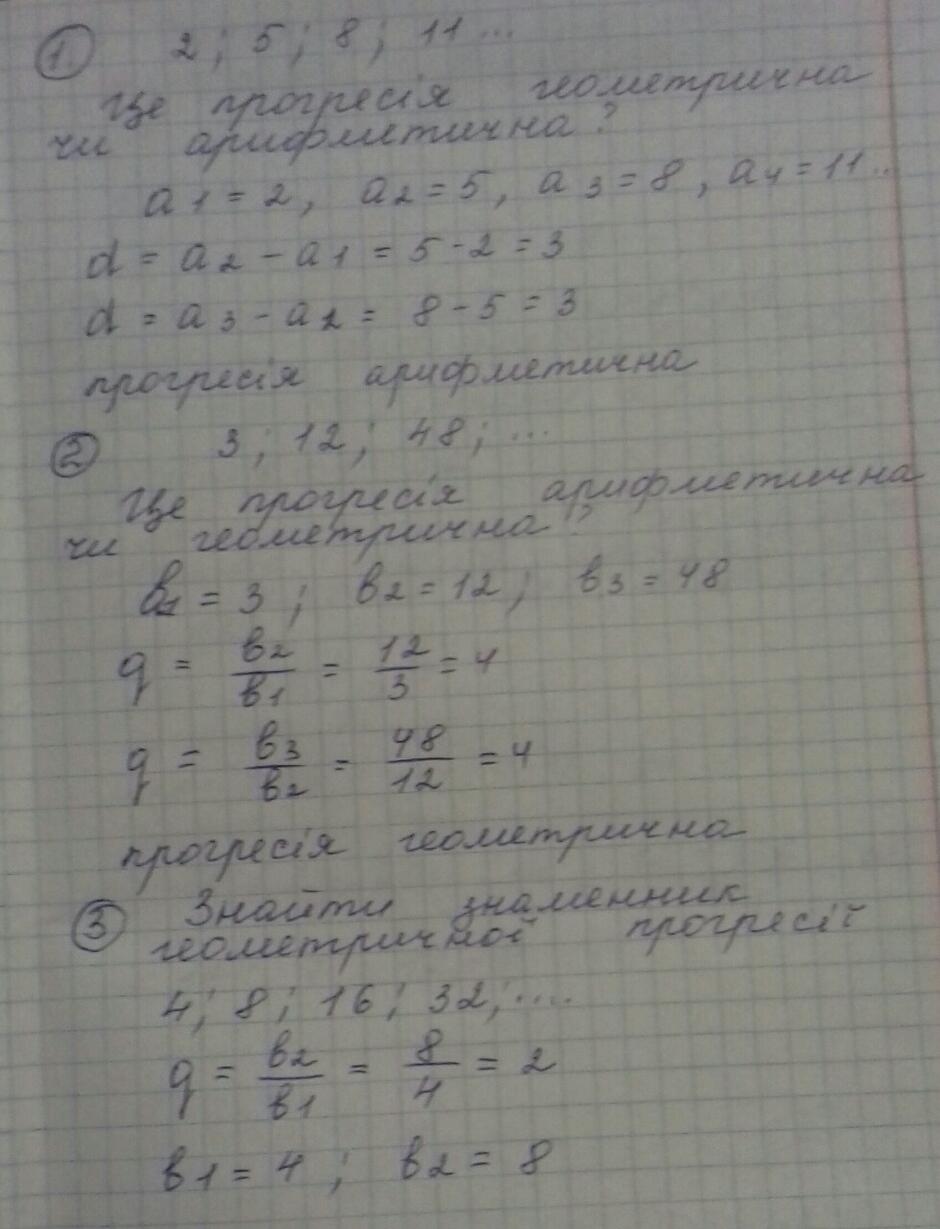 1. 2; 5; 8; 11...
Це прогресія геометрична
чи арифметична?
a1 = 2, a2 = 5, a3 = 8, a4 = 11..
d = a2 - a1 = 5 - 2 = 3
d = a3 - a2 = 8 - 5 = 3
прогресія арифметична
2 3; 12; 48; ...
Це прогресія арифметична
чи геометрична?
b1 = 3; b2 = 12; b3 = 48
q = b2/b1 = 12/3 = 4
q = b3/b2 = 48/12 = 4
прогресія геометрична
3 Знайти знаменник
геометричної прогресії
4; 8; 16; 32; ....
q = b2/b1 = 8/4 = 2
b1 = 4; b2 = 8